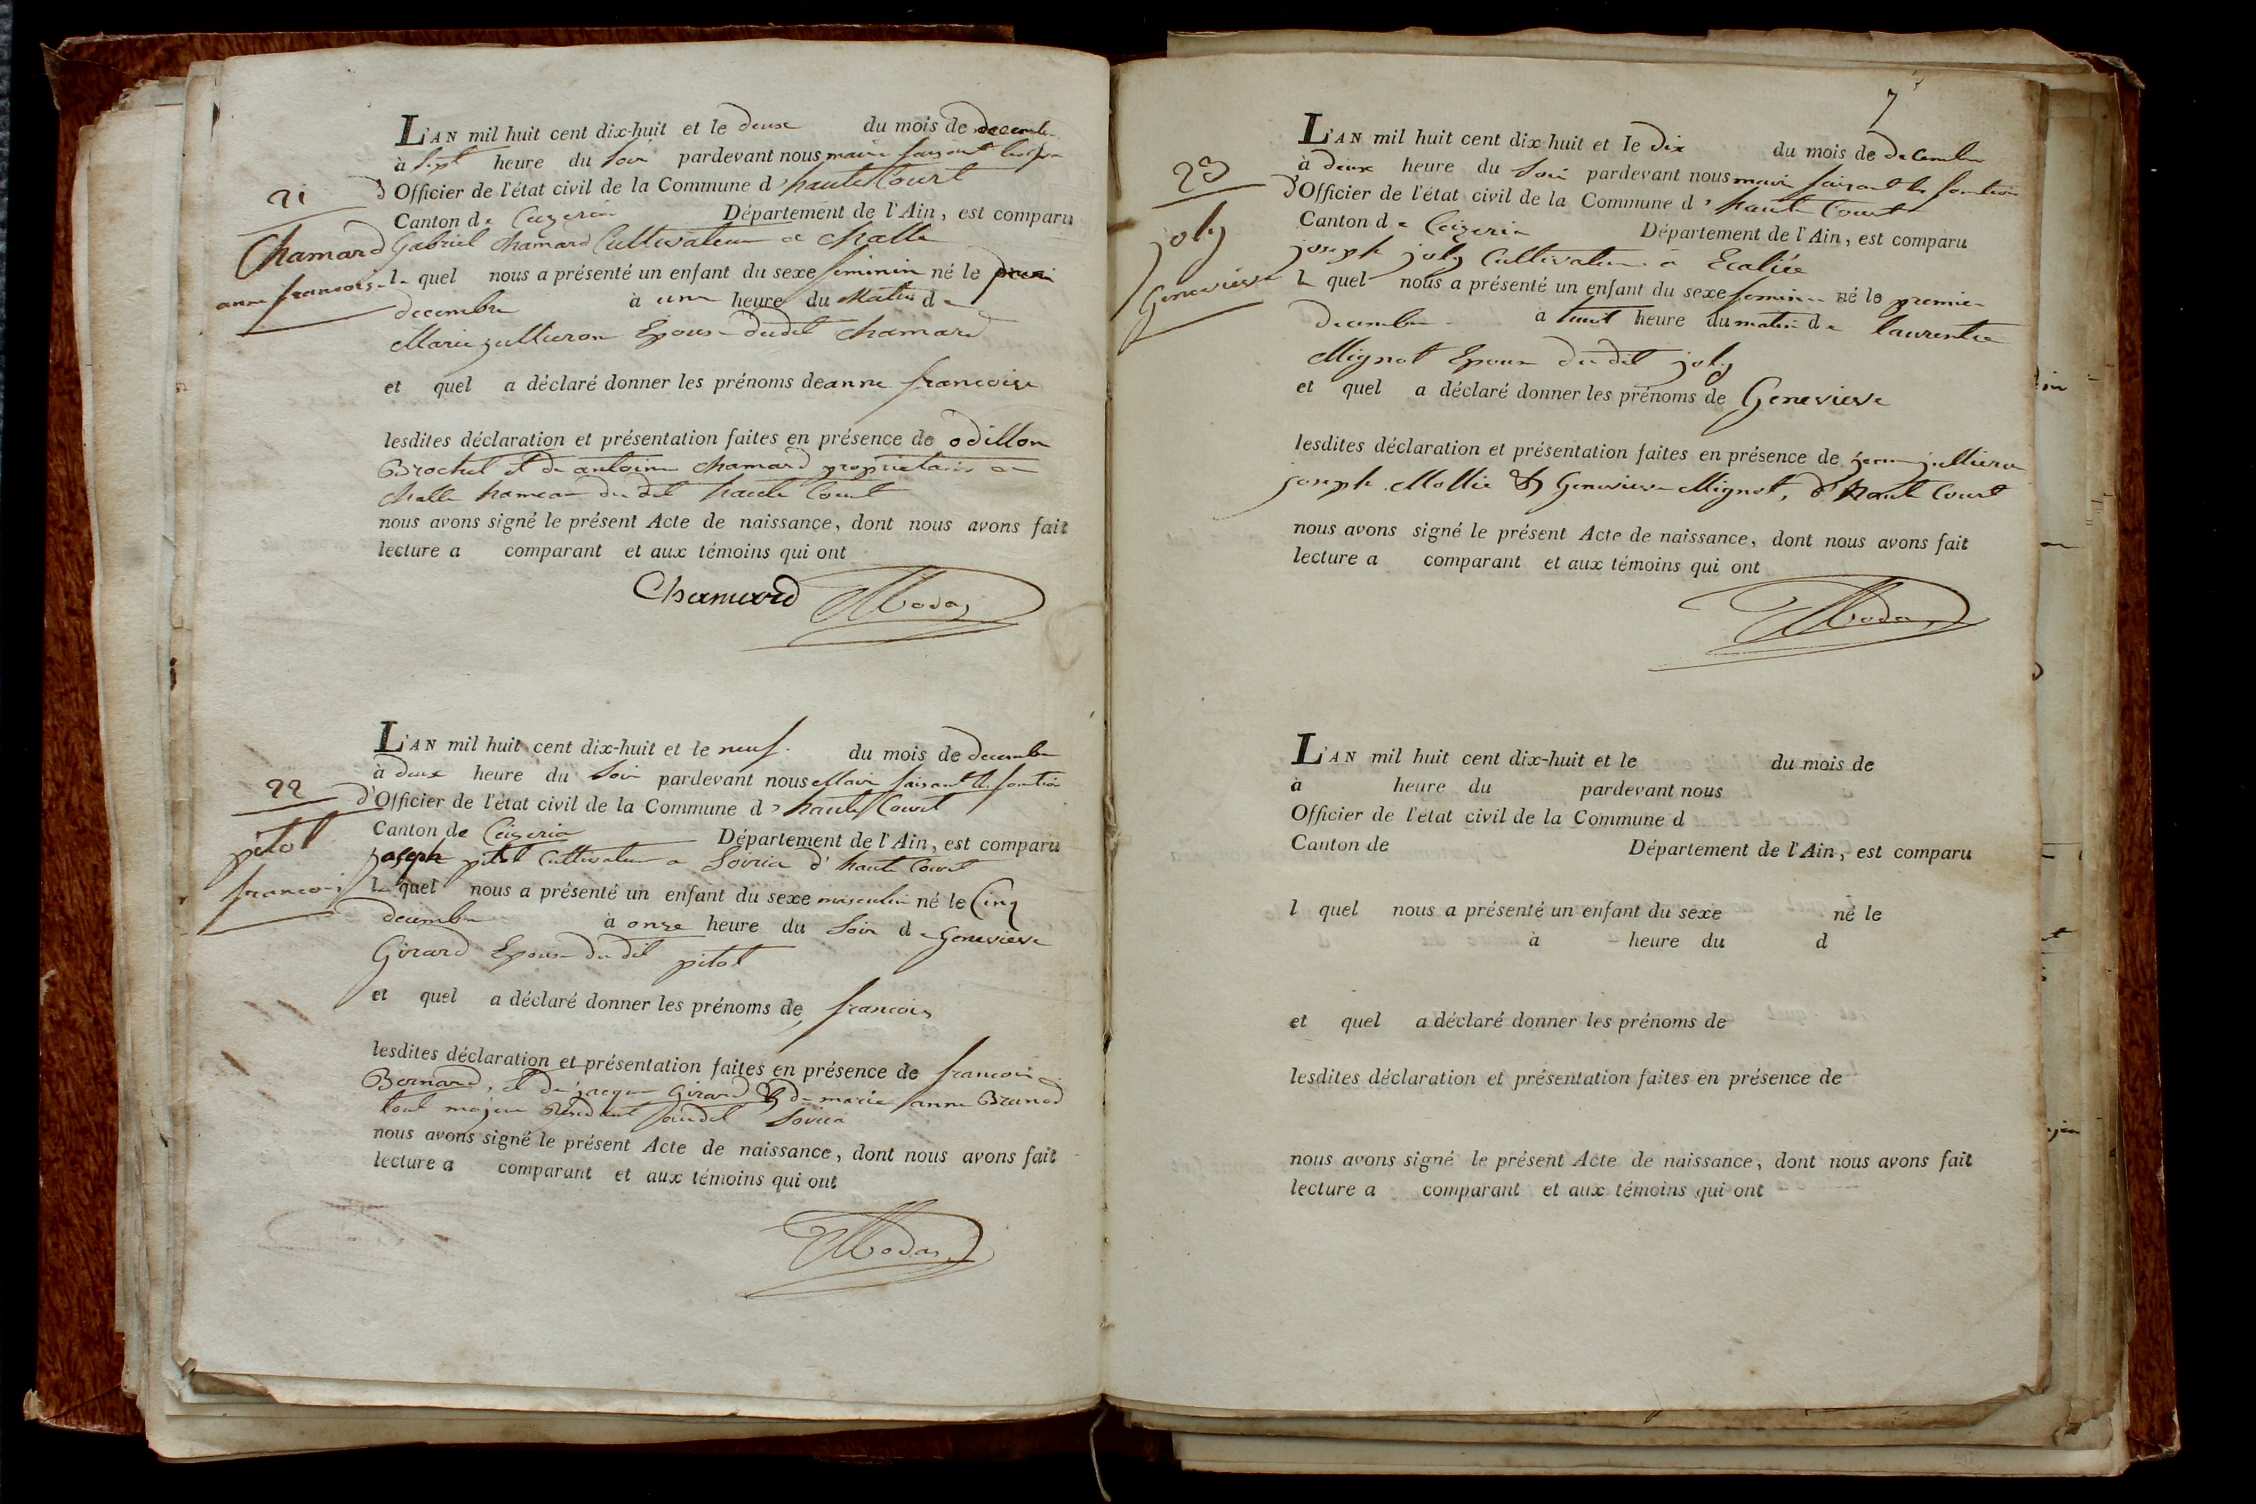 21
Chamard
anne francoise
L'AN mil huit cent dix-huit et le deux du mois de decembre
à sept heure du soir pardevant nous maire faisant les
d'Officier de l'état civil de la Commune d'haute Court
Canton de Ceizeria Département de l'Ain, est comparu
Gabriel chamard Cultivateur a challe
le quel nous a présenté un enfant du sexe feminin né le
decembre à une heure du Matin de
Marie jullieron Epouse dudit chamard
et quel a déclaré donner les prénoms de anne francoise
lesdites déclaration et présentation faites en présence de odillon
Brochet et de antoine chamard proprietaires a
challe hameau du dit haute Court
nous avons signé le présent Acte de naissance, dont nous avons fait
lecture a comparant et aux témoins qui ont
Chamard
22
pitot
francois
L'AN mil huit cent dix-huit et le neuf du mois de decembre
à deux heure du soir pardevant nous Maire faisant les fonction
d'Officier de l'état civil de la Commune d'haute Court
Canton de Ceizeria Département de l'Ain, est comparu
joseph pitot Cultivateur a Soiria d'haute Court
le quel nous a présenté un enfant du sexe masculin né le Cinq
decembre à onze heure du Soir de Genevieve
Girard Epouse du dit pitot
et quel a déclaré donner les prénoms de francois
lesdites déclaration et présentation faites en présence de francois
Bernard, et de jacque Girard & de marie anne Brunod
tout majeur audit Soiria
nous avons signé le présent Acte de naissance, dont nous avons fait
lecture a comparant et aux témoins qui ont
7
23
joly
Genevieve
L'AN mil huit cent dix-huit et le dix du mois de decembre
à deux heure du Soir pardevant nous maire faisant les fonction
d'Officier de l'état civil de la Commune d'haute Court
Canton de Ceizeria Département de l'Ain, est comparu
joseph joly Cultivateur a
le quel nous a présenté un enfant du sexe feminin né le premier
decembre à huit heure du matin de laurentie
Mignot Epouse du dit joly
et quel a déclaré donner les prénoms de Genevieve
lesdites déclaration et présentation faites en présence de
joseph Mollie & Genevieve Mignot, d'haute Court
nous avons signé le présent Acte de naissance, dont nous avons fait
lecture a comparant et aux témoins qui ont
L'AN mil huit cent dix-huit et le du mois de
à heure du pardevant nous
Officier de l'état civil de la Commune d
Canton de Département de l'Ain, est comparu
l quel nous a présenté un enfant du sexe né le
à heure du d
et quel a déclaré donner les prénoms de
lesdites déclaration et présentation faites en présence de
nous avons signé le présent Acte de naissance, dont nous avons fait
lecture a comparant et aux témoins qui ont